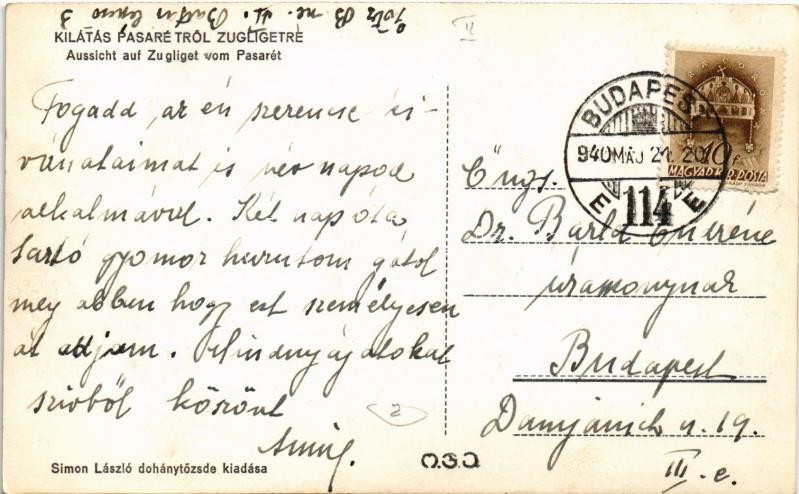 KILÁTÁS PASARÉTRŐL ZUGLIGETRE
Aussicht auf Zugliget vom Pasarét
Fogadd az én szerencse ki-
vánataimat is név napod
alkalmával. Két nap óta
tartó gyomor hurutom gátol
meg abban hogy ezt személyesen
át adjam. Mindnyájatokat
szivből köszönt
Simon László dohánytőzsde kiadása
O.G.O.
2
II
BUDAPEST
940 MÁJ 21. 20
114
10 f
MAGYAR KIR. POSTA
Öngs.
Dr. Barla
úrasszonynak
Budapest
Damjanich u. 19.
III. e.